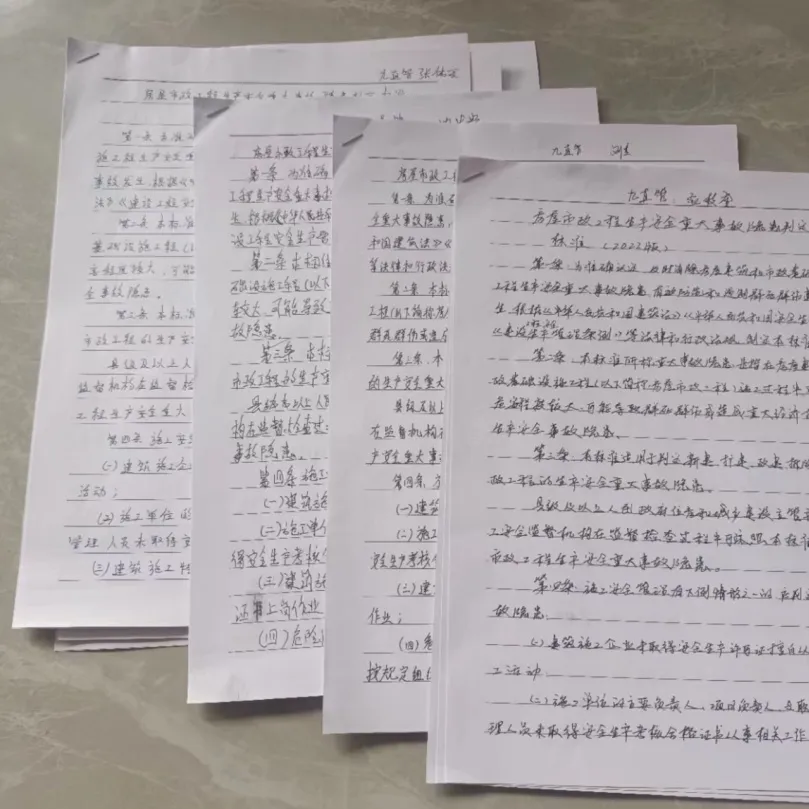 九直管 张
房屋市政工程生产安全重大事故隐患判定标准
第一条 为准
施工程生产安全
事故发生,根据《
法》《建设工程安
第二条 本标准
基础设施工程(
害程度较大、可能
全事故隐患。
第三条 本标准
市政工程的生产安
县级及以上人
监督机构在监督检
工程生产安全重大
第四条 施工安
(一)建筑施工企
活动;
(2)施工单位的
管理人员未取得安
(三)建筑施工特
房屋市政工程生
第一条 为准确
工程生产安全重大事故
生,根据《中华人民共和
设工程安全生产管
第二条 本标准
础设施工程(以下
较大、可能导致
故隐患。
第三条 本标
市政工程的生产安
县级及以上人民
构在监督检查过
事故隐患。
第四条 施工
(一)建筑施
(二)施工单位
得安全生产考核
(三)建筑施
证书上岗作业
(四)危险
九直管
房屋市政工
第一条 为准
全重大事故隐患,
和国建筑法》《
等法律和行政法
第二条 本标
工程(以下简称房
群死群伤或造成
第三条 本
的生产安全重大
县级及以上
在监督机构
产安全重大事
第四条 施
(一)建筑
(二)施工
安全生产考核
(三)建
作业;
(四)危
按规定组
九直管:
房屋市政工程生产安全重大事故隐患判定
标准(2022版)
第一条 为准确认定、及时消除房屋建筑和市政基础
工程生产安全重大事故隐患,有效防范和遏制群死群伤事
生,根据《中华人民共和国建筑法》《中华人民共和国安全生
《建设工程安全生产管理条例》等法律和行政法规,制定本标准
第二条 本标准所称重大事故隐患,是指在房屋
政基础设施工程(以下简称房屋市政工程)施工过程中
危害程度较大、可能导致群死群伤或造成重大经济
生产安全事故隐患。
第三条 本标准适用于判定新建、扩建、改建、拆除
政工程的生产安全重大事故隐患。
县级及以上人民政府住房和城乡建设主管
工安全监督机构在监督检查过程中可依照本标准
市政工程生产安全重大事故隐患。
第四条 施工安全管理有下列情形之一的,应判
故隐患:
(一)建筑施工企业未取得安全生产许可证擅自从
工活动;
(二)施工单位的主要负责人、项目负责人、专职
理人员未取得安全生产考核合格证书从事相关工作